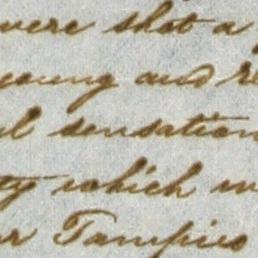 were shot a
young and re
l sensation
ty which w
r Tampico